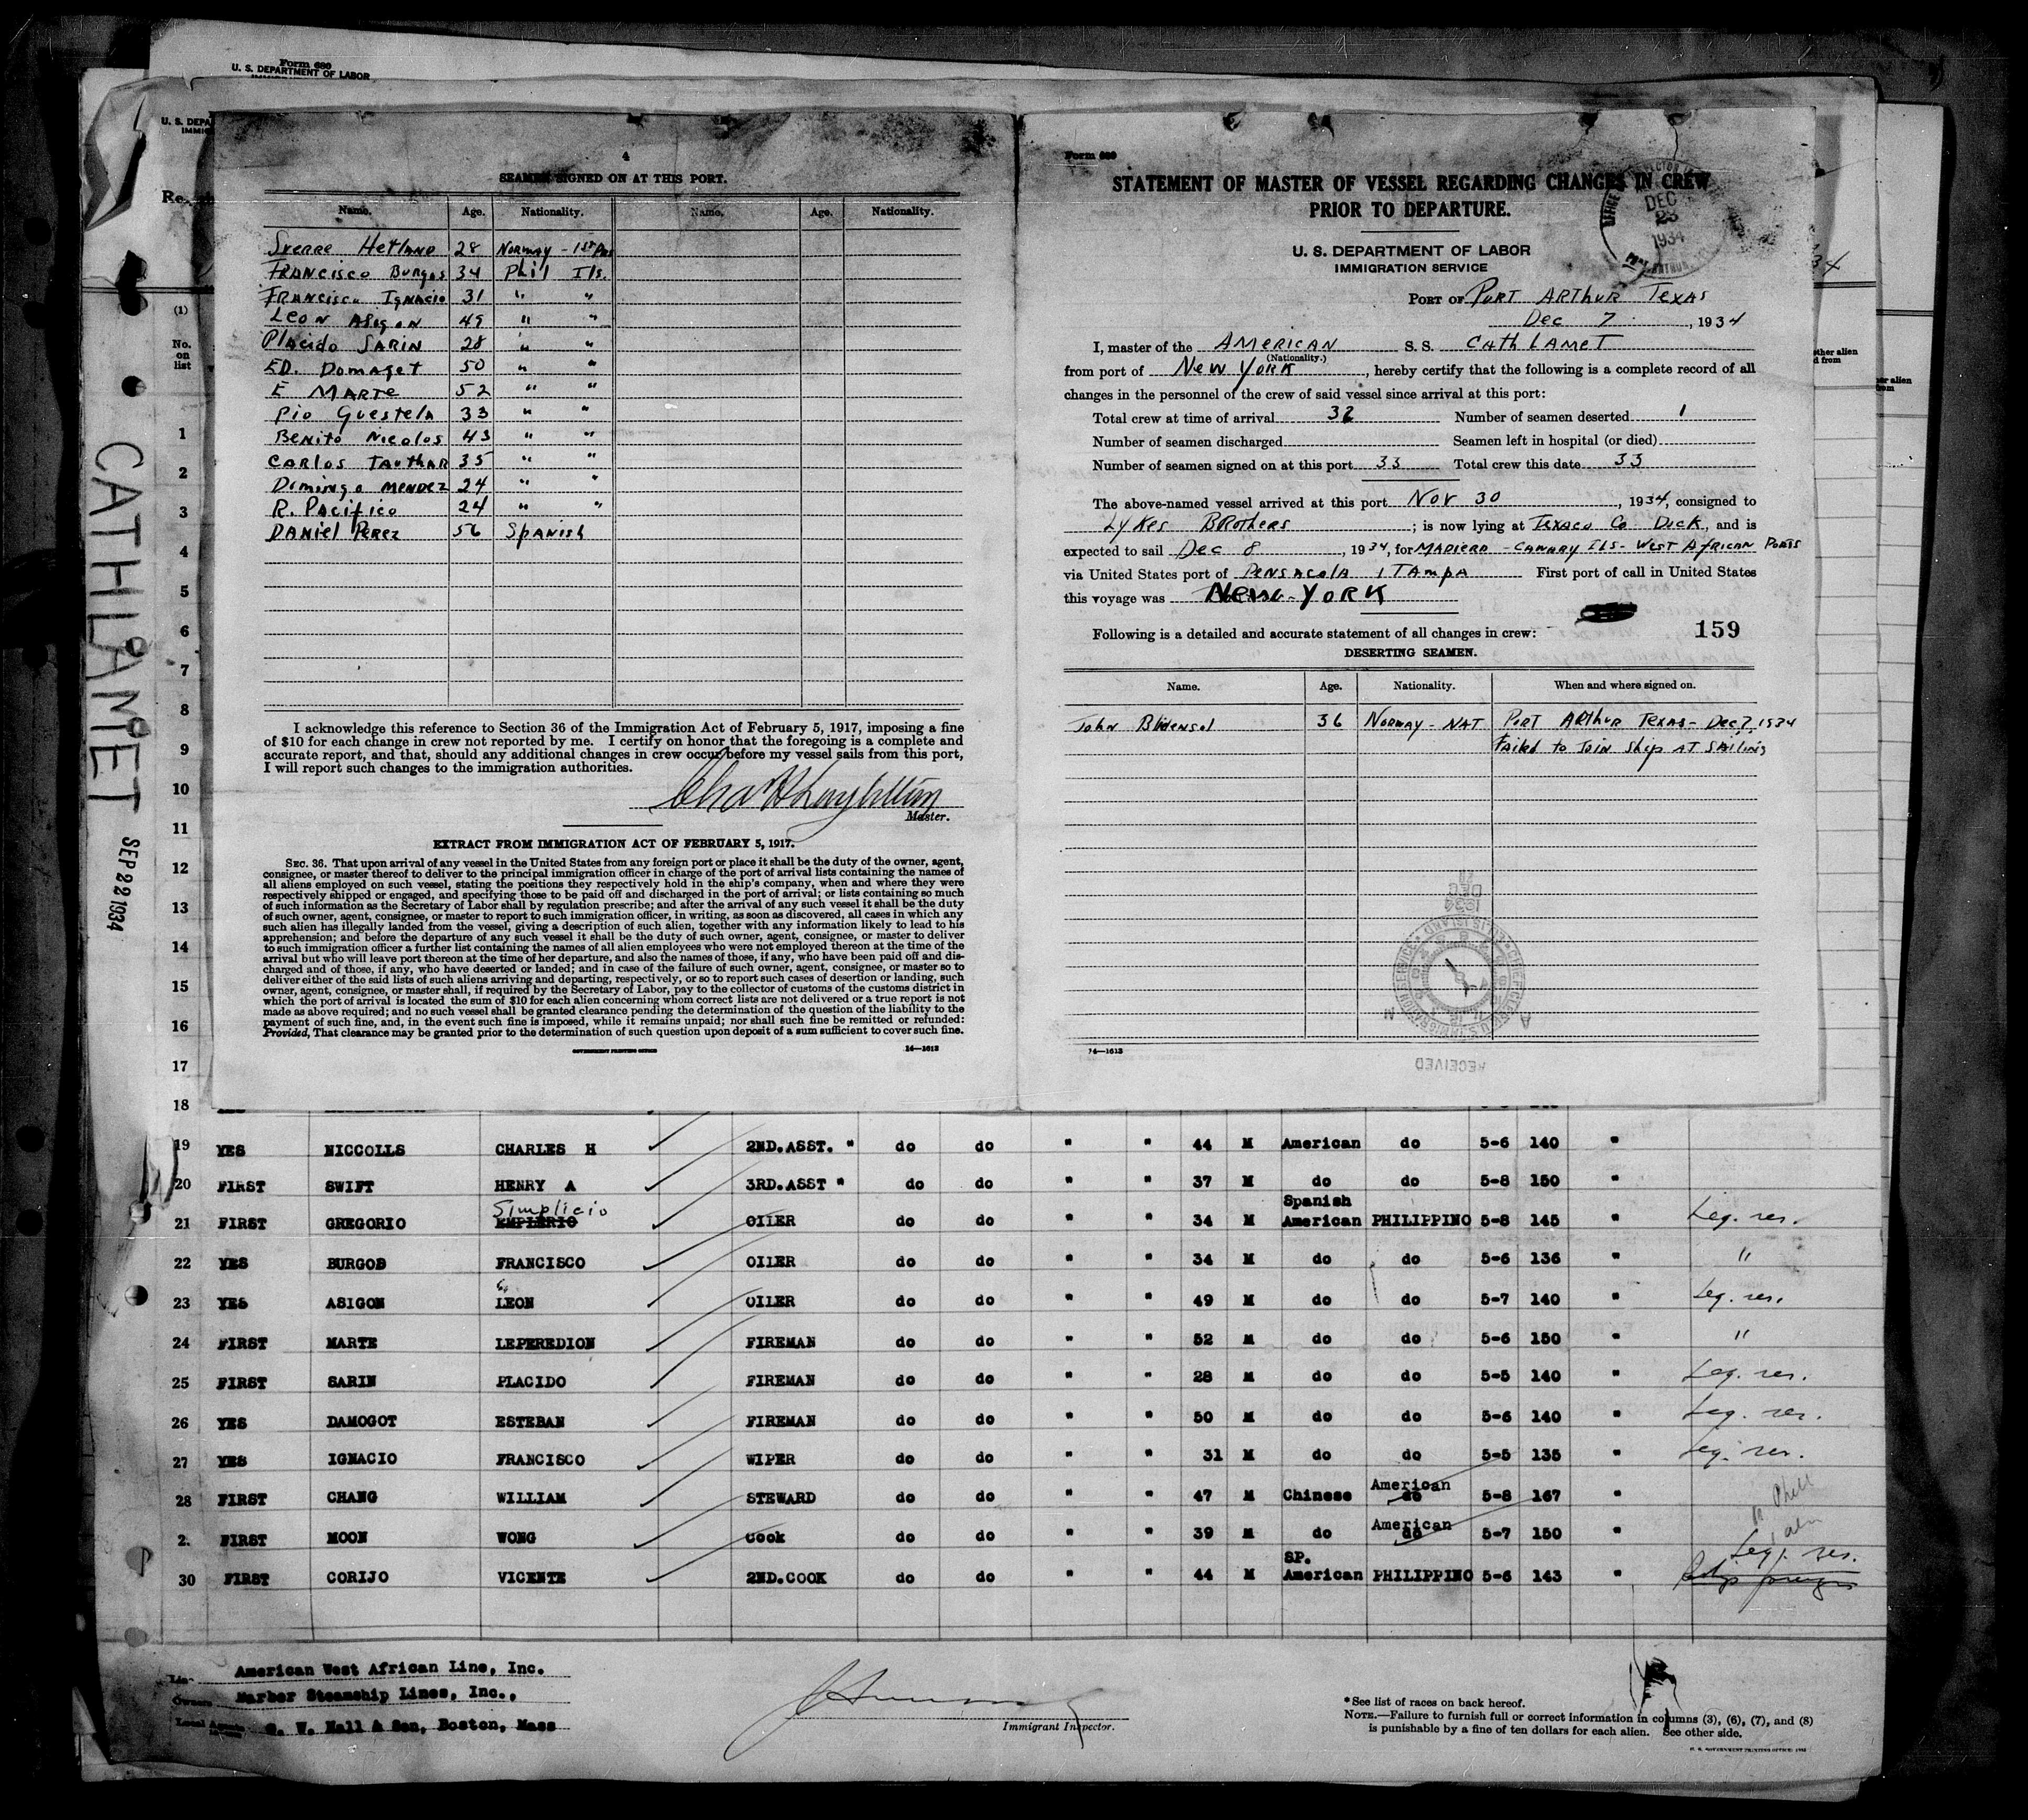 Form 680
U. S. DEPARTMENT OF LABOR
U. S. DEPA
IMMIG
(1)
No.
on
list
CATHLAMET
SEP 22 1934
4
SEAMEN SIGNED ON AT THIS PORT.
Name. Age. Nationality. Name. Age. Nationality.
Sverre Hetland 28 Norway - 1st Pas
Francisco Burgos 34 Phil Ils.
Francisco Ignacio 31 " "
Leon Asigon 49 " "
Placido Sarin 28 " "
ED. Domaget 50 " "
E Marte 52 " "
Pio Guestela 33 " "
Benito Nicolos 43 " "
Carlos Tauthar 35 " "
Dimingo Mendez 24 " "
R. Pacifico 24 " "
Daniel Perez 56 Spanish
I acknowledge this reference to Section 36 of the Immigration Act of February 5, 1917, imposing a fine
of $10 for each change in crew not reported by me. I certify on honor that the foregoing is a complete and
accurate report, and that, should any additional changes in crew occur before my vessel sails from this port,
I will report such changes to the immigration authorities.
Master.
EXTRACT FROM IMMIGRATION ACT OF FEBRUARY 5, 1917.
SEC. 36. That upon arrival of any vessel in the United States from any foreign port or place it shall be the duty of the owner, agent,
consignee, or master thereof to deliver to the principal immigration officer in charge of the port of arrival lists containing the names of
all aliens employed on such vessel, stating the positions they respectively hold in the ship's company, when and where they were
respectively shipped or engaged, and specifying those to be paid off and discharged in the port of arrival; or lists containing so much
of such information as the Secretary of Labor shall by regulation prescribe; and after the arrival of any such vessel it shall be the duty
of such owner, agent, consignee, or master to report to such immigration officer, in writing, as soon as discovered, all cases in which any
such alien has illegally landed from the vessel, giving a description of such alien, together with any information likely to lead to his
apprehension; and before the departure of any such vessel it shall be the duty of such owner, agent, consignee, or master to deliver
to such immigration officer a further list containing the names of all alien employees who were not employed thereon at the time of the
arrival but who will leave port thereon at the time of her departure, and also the names of those, if any, who have been paid off and dis-
charged and of those, if any, who have deserted or landed; and in case of the failure of such owner, agent, consignee, or master so to
deliver either of the said lists of such aliens arriving and departing, respectively, or so to report such cases of desertion or landing, such
owner, agent, consignee, or master shall, if required by the Secretary of Labor, pay to the collector of customs of the customs district in
which the port of arrival is located the sum of $10 for each alien concerning whom correct lists are not delivered or a true report is not
made as above required; and no such vessel shall be granted clearance pending the determination of the question of the liability to the
payment of such fine, and, in the event such fine is imposed, while it remains unpaid; nor shall such fine be remitted or refunded:
Provided, That clearance may be granted prior to the determination of such question upon deposit of a sum sufficient to cover such fine.
GOVERNMENT PRINTING OFFICE 14—1613
Form 680
STATEMENT OF MASTER OF VESSEL REGARDING CHANGES IN CREW
PRIOR TO DEPARTURE.
DEC 23 1934
U. S. DEPARTMENT OF LABOR
IMMIGRATION SERVICE
PORT OF Port Arthur Texas
Dec 7, 1934
I, master of the American S. S. Cathlamet
(Nationality.)
from port of New York, hereby certify that the following is a complete record of all
changes in the personnel of the crew of said vessel since arrival at this port:
Total crew at time of arrival 32 Number of seamen deserted 1
Number of seamen discharged Seamen left in hospital (or died)
Number of seamen signed on at this port 33 Total crew this date 33
The above-named vessel arrived at this port Nov 30, 1934, consigned to
Lykes Brothers; is now lying at Texaco Co. Dock, and is
expected to sail Dec 8, 1934, for Madiera - Canary Ils - West African Ports
via United States port of Pensacola, Tampa First port of call in United States
this voyage was New-York
Following is a detailed and accurate statement of all changes in crew: 159
DESERTING SEAMEN.
Name. Age. Nationality. When and where signed on.
John 36 Norway - NAT Port Arthur Texas - Dec 7, 1934
Failed to Join Ship at Sailing
DEC 1934
RECEIVED
14—1613
1
2
3
4
5
6
7
8
9
10
11
12
13
14
15
16
17
18
19 YES NICCOLLS CHARLES H 2ND.ASST. " do do " " 44 M American do 5-6 140 "
20 FIRST SWIFT HENRY A 3RD.ASST " do do " " 37 M do do 5-8 150 "
21 FIRST GREGORIO Simplicio EMPLERIO OILER do do " " 34 M Spanish American PHILIPPINO 5-8 145 " Leg. res.
22 YES BURGOS FRANCISCO OILER do do " " 34 M do do 5-6 136 " "
23 YES ASIGON LEON OILER do do " " 49 M do do 5-7 140 " Leg. res.
24 FIRST MARTE LEPEREDION FIREMAN do do " " 52 M do do 5-6 150 " "
25 FIRST SARIN PLACIDO FIREMAN do do " " 28 M do do 5-5 140 " Leg. res.
26 YES DAMOGOT ESTEBAN FIREMAN do do " " 50 M do do 5-6 140 " Leg. res.
27 YES IGNACIO FRANCISCO WIPER do do " " 31 M do do 5-5 135 " Leg. res.
28 FIRST CHANG WILLIAM STEWARD do do " " 47 M Chinese American do 5-8 167 "
2. FIRST MOON WONG Cook do do " " 39 M do American do 5-7 150 "
30 FIRST CORIJO VICENTE 2ND.COOK do do " " 44 M SP. American PHILIPPINO 5-6 143 " Leg. res.
Line American West African Line, Inc.
Owners Barber Steamship Lines, Inc.,
Local Agents C. W. Hall & Son, Boston, Mass
Immigrant Inspector.
*See list of races on back hereof.
NOTE.—Failure to furnish full or correct information in columns (3), (6), (7), and (8)
is punishable by a fine of ten dollars for each alien. See other side.
U. S. GOVERNMENT PRINTING OFFICE